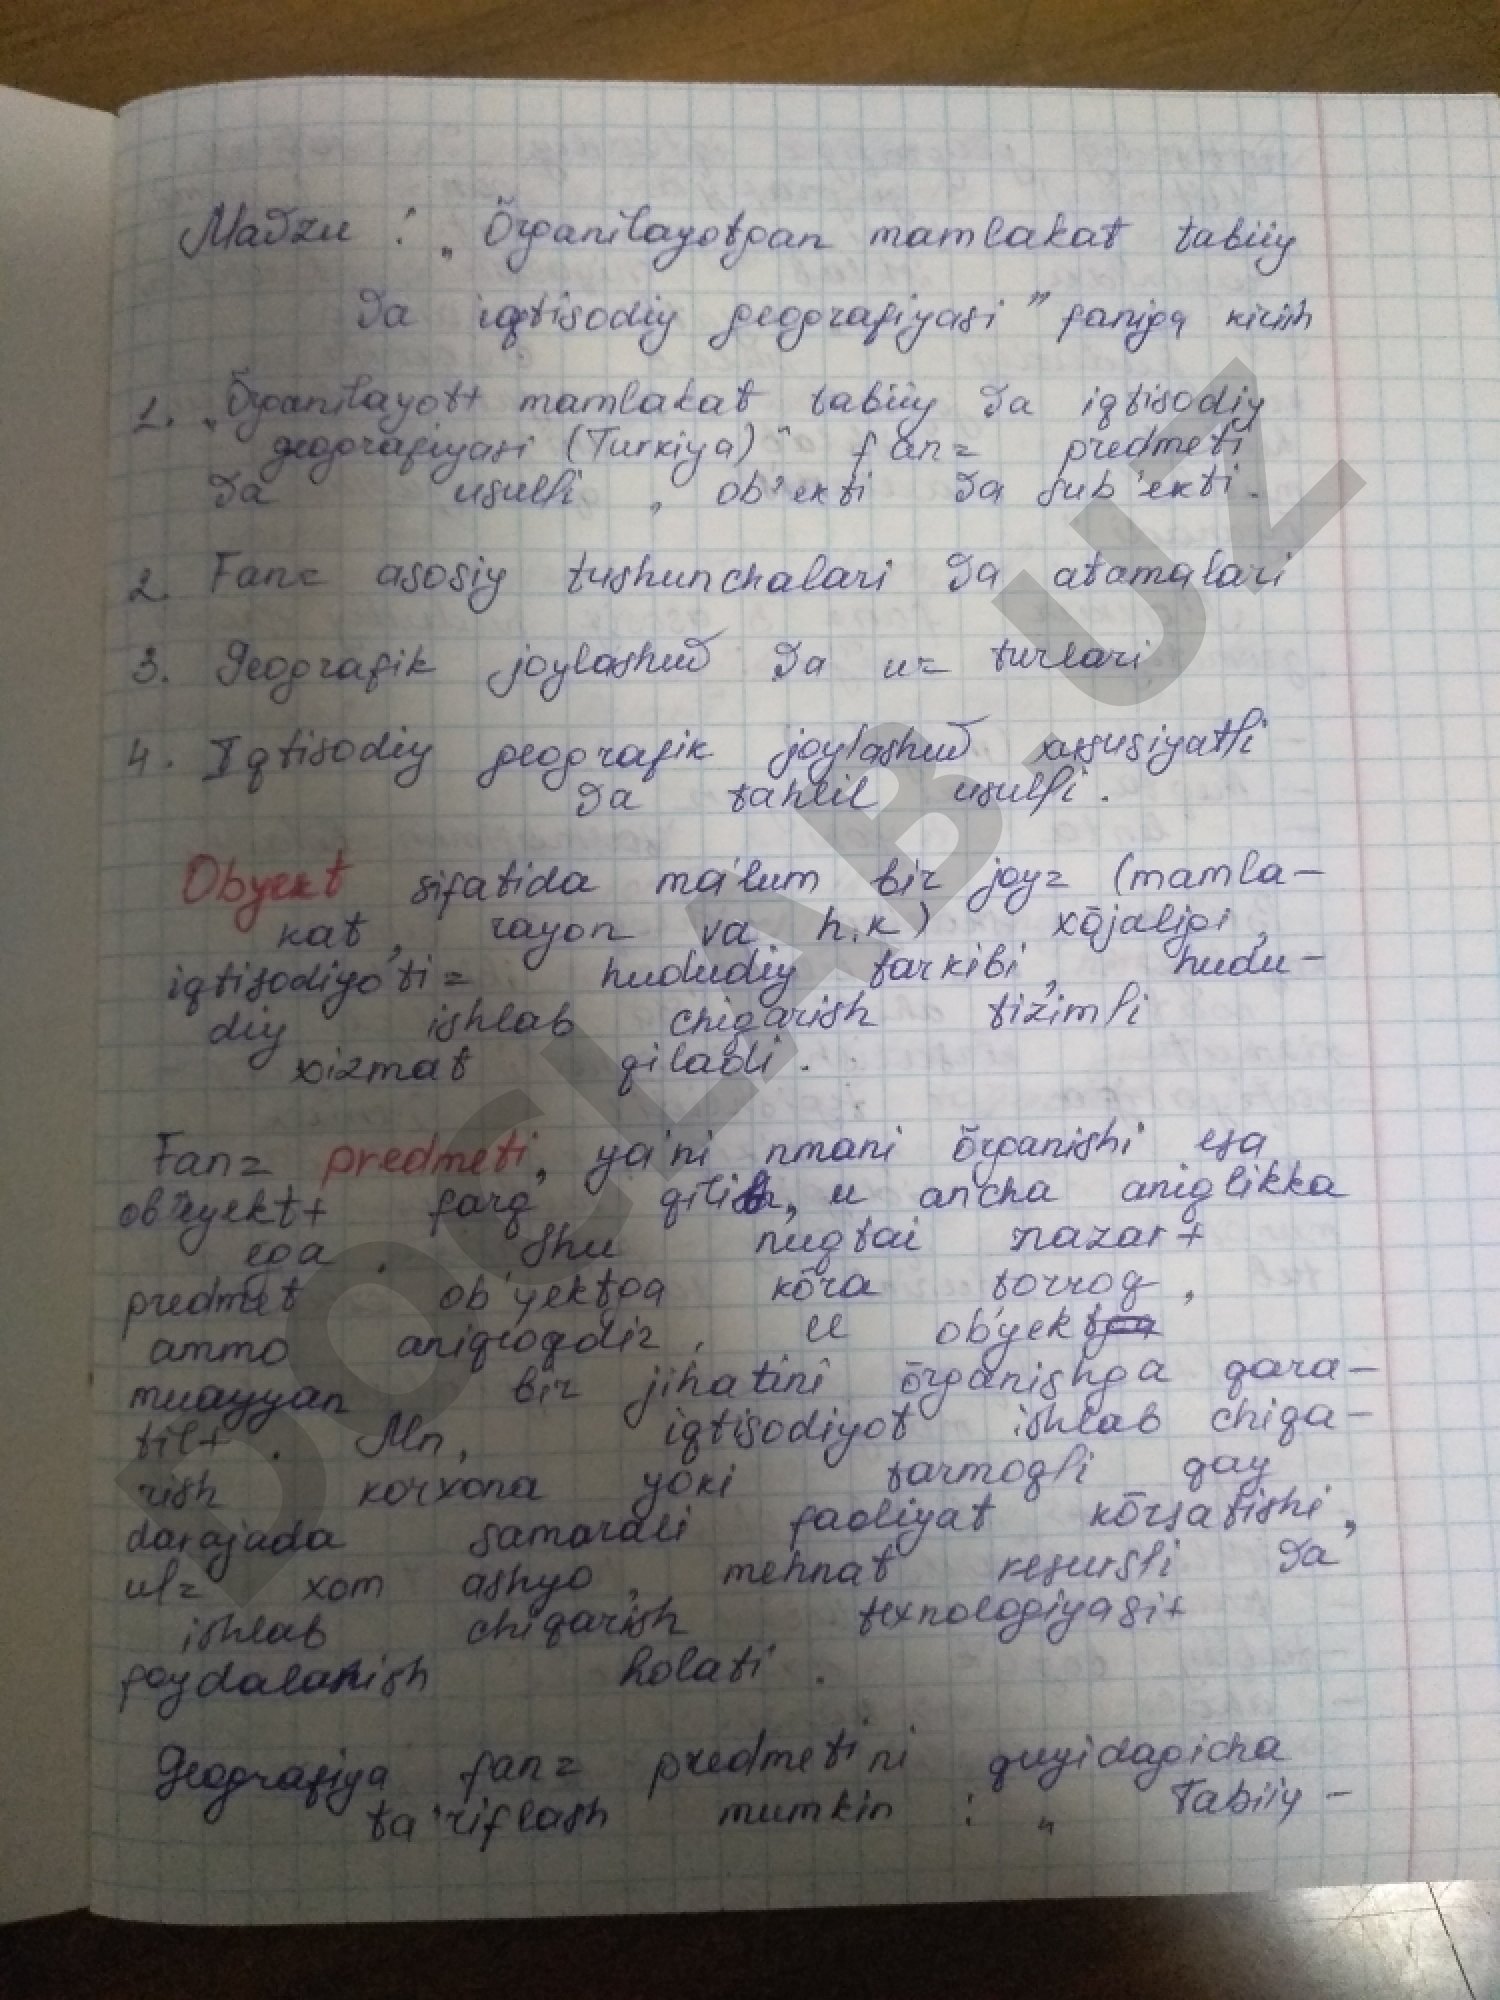 Mavzu : „Õrganilayotgan mamlakat tabiiy
va iqtisodiy geografiyasi" faniga kirish
1. „Õrganilayot+ mamlakat tabiiy va iqtisodiy
geografiyasi (Turkiya)" fan= predmeti
va usulli, ob'ekti va sub'ekti.
2. Fan= asosiy tushunchalari va atamalari
3. Geografik joylashuv va u= turlari
4. Iqtisodiy geografik joylashuv xususiyatli
va tahlil usulli.
Obyekt sifatida ma'lum bir joy= (mamla-
kat, rayon va h.k) xõjaligi,
iqtisodiyo'ti= hududiy tarkibi, hudu-
diy ishlab chiqarish tizimli
xizmat qiladi.
Fan= predmeti, ya'ni nmani õrganishi esa
ob'yekt+ farq qilib, u ancha aniqlikka
ega. Shu nuqtai nazar+
predmet ob'yektga kõra torroq,
ammo aniqroqdir. U ob'yekt
muayyan bir jihatini õrganishga qara-
til+. Mn, iqtisodiyot ishlab chiqa-
rish korxona yoki tarmoqli qay
darajada samarali faoliyat kõrsatishi,
ul= xom ashyo, mehnat resursli va
ishlab chiqarish texnologiyasi+
foydalanish holati.
Geografiya fan= predmetini quyidagicha
ta'riflash mumkin : „Tabiiy-
DOCLAB.UZ